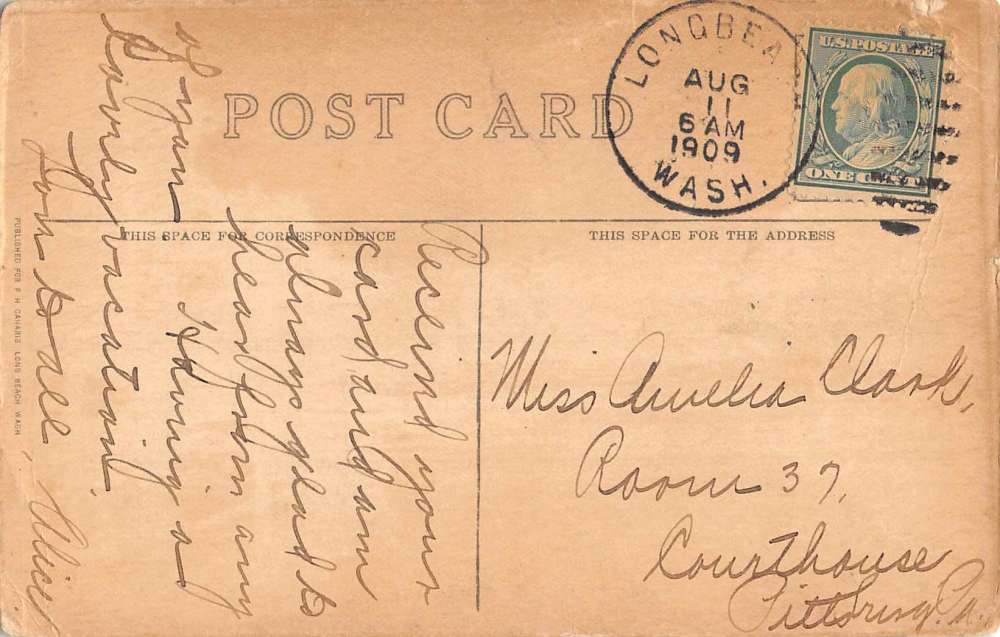 POST CARD
LONGBEA
AUG
11
6 AM
1909
WASH.
U.S. POSTAGE
ONE CENT
THIS SPACE FOR CORRESPONDENCE
THIS SPACE FOR THE ADDRESS
Received your
card and am
always glad to
hear from any
of you Having a
lovely vacation.
Love to all, Alice.
Miss Amelia Clark,
Room 37,
Courthouse
Pittsburg, Pa.
PUBLISHED FOR F H LONG BEACH WASH